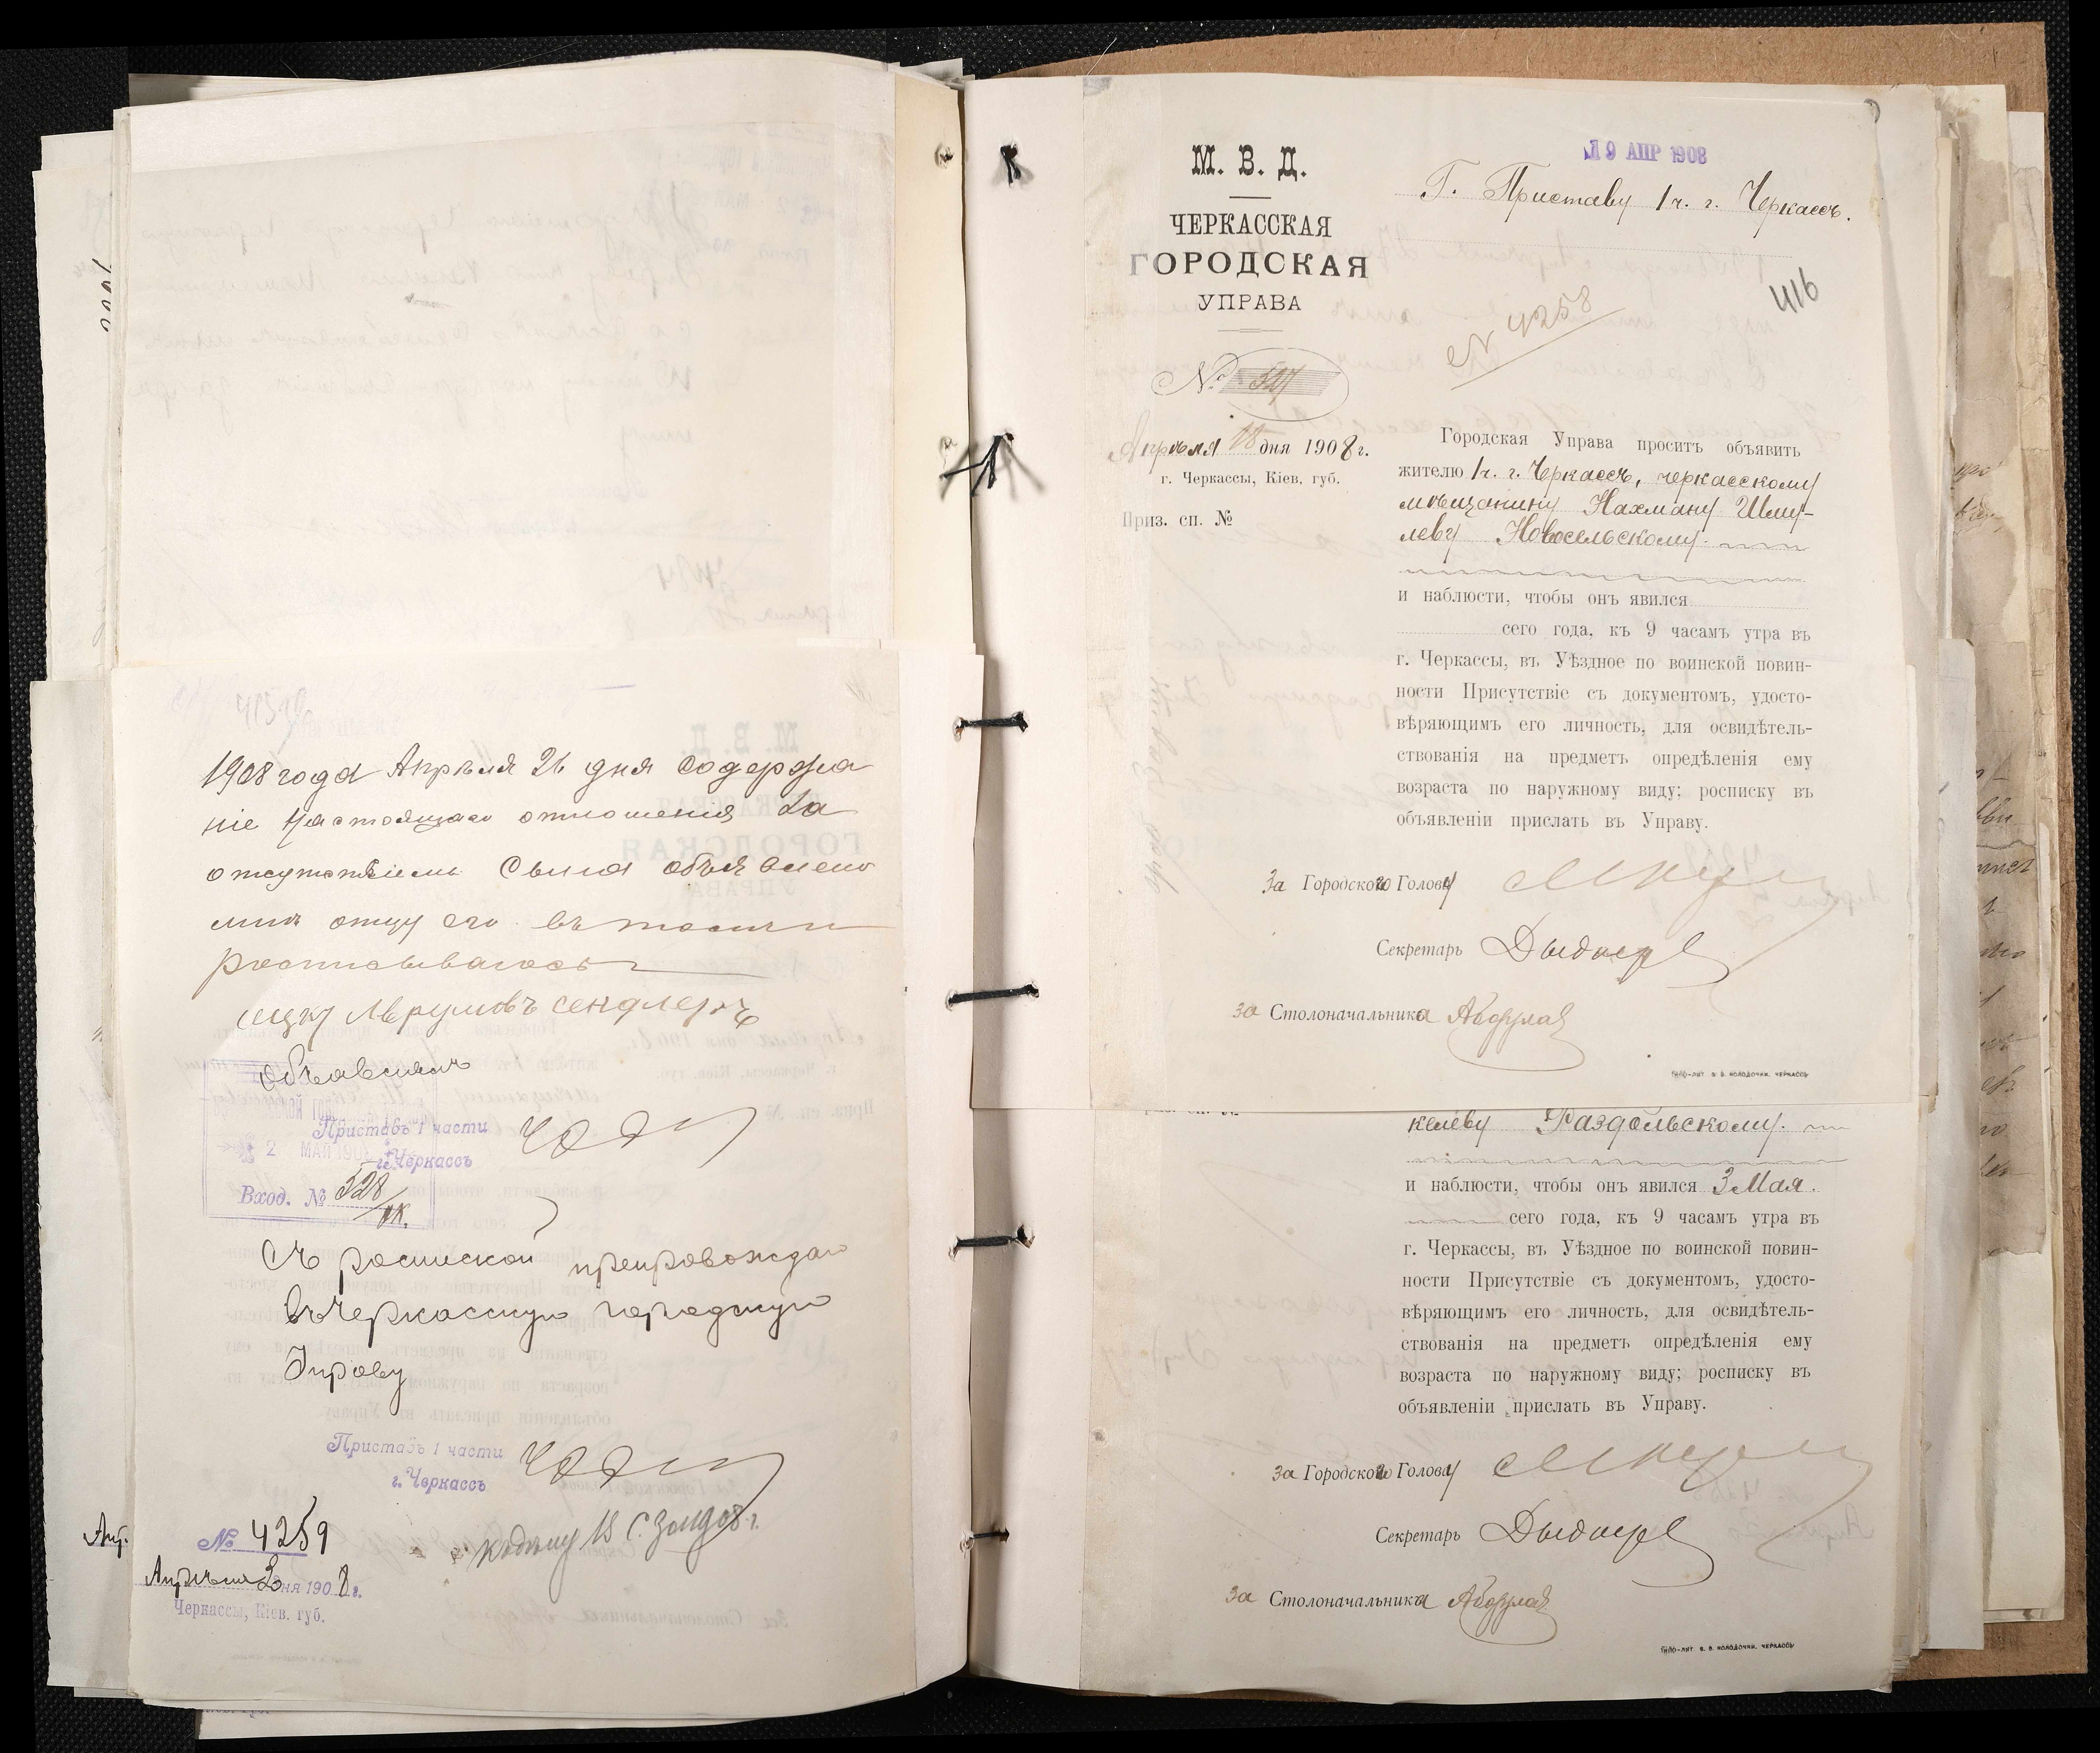 1908 года Апрѣля 26 дня содержа
ніе настоящаго отношенія за
отсутствіемъ сына объявлено
мнѣ отцу его въ томъ и
росписываюсь
Ицку Аврумовъ Сендлеръ
Объявилъ
Приставъ 1 части
г. Черкассъ
2 МАЯ 190
Вход. № 528
Съ роспиской препровождаю
въ Черкасскую городскую
Управу
Приставъ 1 части
г. Черкассъ
№ 4259
Апрѣля дня 1908 г.
Черкассы, Кіев. губ.
М. В. Д.
ЧЕРКАССКАЯ
ГОРОДСКАЯ
УПРАВА
№ 527
Апрѣля 18 дня 1908 г.
г. Черкассы, Кіев. губ.
Приз. сп. №
19 АПР 1908
Г. Приставу 1 ч. г. Черкассъ.
416
№ 4258
Городская Управа проситъ объявить
жителю 1 ч. г. Черкассъ, черкасскому
мѣщанину Нахману Шму-
леву Новосельскому.
и наблюсти, чтобы онъ явился
сего года, къ 9 часамъ утра въ
г. Черкассы, въ Уѣздное по воинской повин-
ности Присутствіе съ документомъ, удосто-
вѣряющимъ его личность, для освидѣтель-
ствованія на предметъ опредѣленія ему
возраста по наружному виду; росписку въ
объявленіи прислать въ Управу.
За Городского Голову
Секретарь
За Столоначальника
ТИПО-ЛИТ. В. В. КОЛОДОЧКИ. ЧЕРКАССЫ
келеву Раздольскому.
и наблюсти, чтобы онъ явился 3 Мая.
сего года, къ 9 часамъ утра въ
г. Черкассы, въ Уѣздное по воинской повин-
ности Присутствіе съ документомъ, удосто-
вѣряющимъ его личность, для освидѣтель-
ствованія на предметъ опредѣленія ему
возраста по наружному виду; росписку въ
объявленіи прислать въ Управу.
За Городского Голову
Секретарь
За Столоначальника
ТИПО-ЛИТ. В. В. КОЛОДОЧКИ. ЧЕРКАССЫ